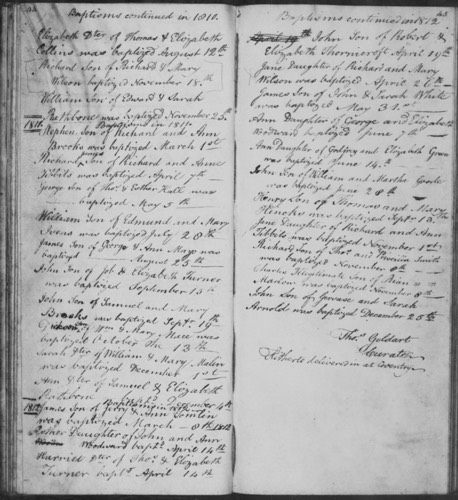 Baptisms continued in 1810.
Elizabeth Dter of Thomas & Elizabeth
Collins was baptized August 12th
Richard Son of Richard & Mary
Wilson baptized November 18th
William Son of Edward & Sarah
Rathbone was baptized November 25th
Baptisms in 1811.
1811 Stephen Son of Richard and Ann
Brooks was baptized March 1st
Richard Son of Richard and Anne
Tibbits was baptized April 7th
George Son of Thos & Esther Hall was
baptized May 5th
William Son of Edmund and Mary
was baptized July 28th
James Son of George & Ann Mayo was
baptized August 25th
John Son of Job & Elizabeth Turner
was baptized September 15th
John Son of Samuel and Mary
Brooks was baptized Septr 19th
of Wm & Mary was
baptized October the 13th
Sarah dter of William & Mary
was baptized December 1st
Ann dter of Samuel & Elizabeth
Rathbone December 4th
Baptisms in 1812
1812 James Son of Jerry & Ann Tomlin
was baptized March 8th 1812
Esther Daughter of John and Ann
Woodward bapt. April 14th
Harriet dter of Thos & Elizabeth
Turner bapt. April 14th
Baptisms continued in 1812
April 19th John Son of Robert &
Elizabeth Thornicroft April 19th
Jane Daughter of Richard and Mary
Wilson was baptized April 26th
James Son of John & Sarah White
was baptized May 31st
Ann Daughter of George and Elizabeth
Woodwan baptized June 7th
Ann Daughter of Godfrey and Elizabeth Green
was baptized June 14th
John Son of William and Martha
was baptized June 28th
Henry Son of Thomas and Mary
Hincks was baptized Septr 13th
Daughter of Richard and Ann
Tibbits was baptized November 1st
Richard Son of Thos and Smith
was baptized November 8th
Charles Son of
was baptized November 8th
John Son of Gervase and Sarah
Arnold was baptized December 25th
Thos Geldart
Curate
delivered in at Coventry